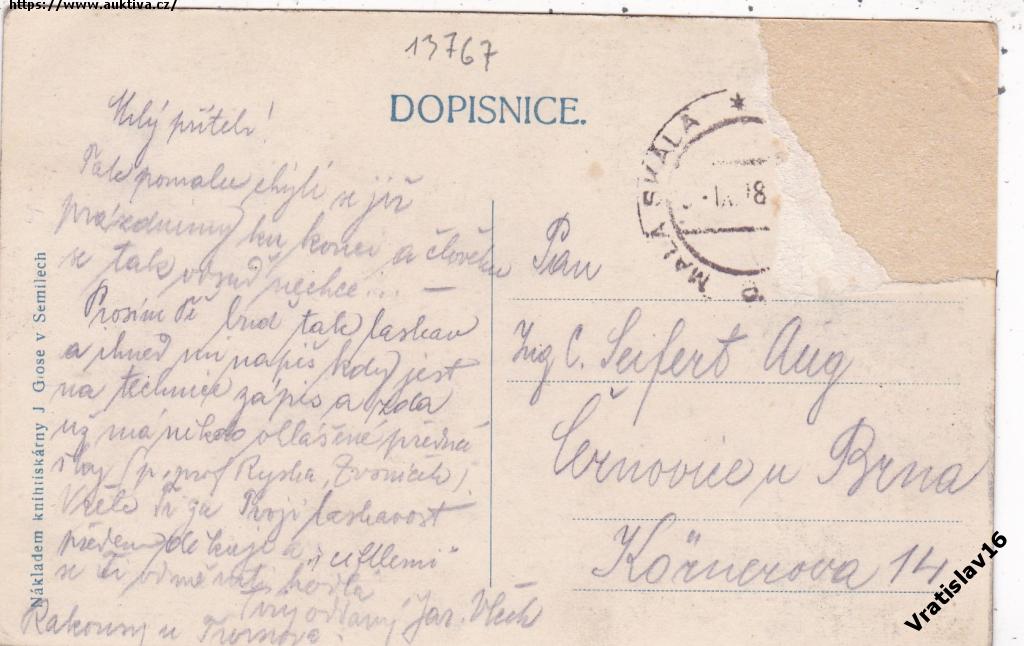 https://www.auktiva.cz/
13767
DOPISNICE.
MALÁ SKÁLA
Milý příteli!
Tak pomalu chýlí se již
prázdniny ku konci a člověku
se tak odsud nechce... —
Prosím Tě buď tak laskav
a ihned mi napiš kdy jest
na technice zápis a zda
už má někdo ohlášené předná
šky (p. prof Ryska, Zvoníček).
Vřele Ti za Tvoji laskavost
předem děkuje a
se Ti odměniti hodlá
Tvůj oddaný Jar. Vlech
Rakousy u Turnova.
Pan
Ing C. Seifert Aug
Černovice u Brna
Körnerova 14
Nákladem knihtiskárny J Glose v Semilech
Vratislav16